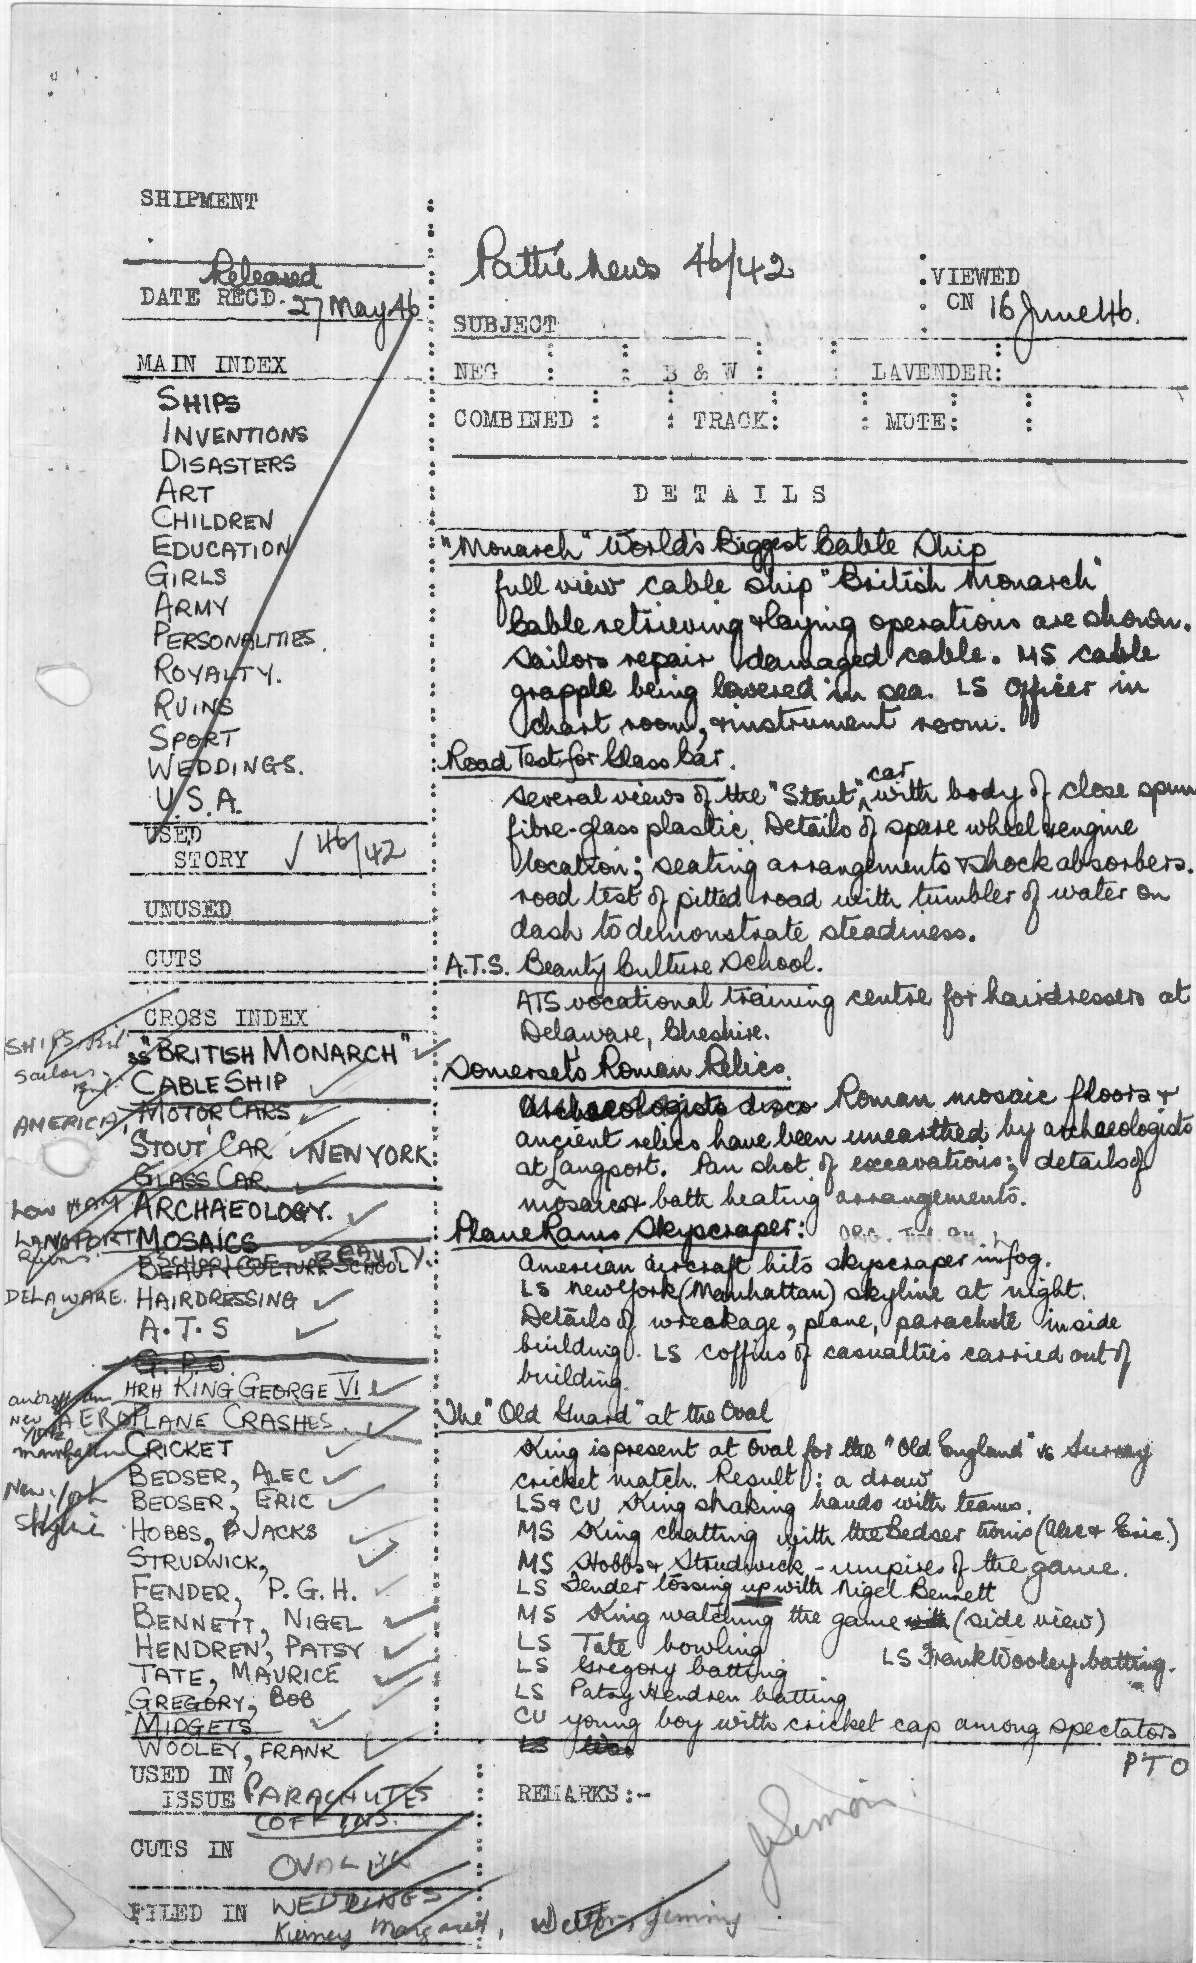 SHIPMENT
Released
DATE RECD. 27 May 46
Pathé News 46/42
VIEWED
ON 16 June 46.
SUBJECT
NEG : : B & W : : LAVENDER:
COMBINED : : TRACK: : MUTE: :
MAIN INDEX
SHIPS
INVENTIONS
DISASTERS
ART
CHILDREN
EDUCATION
GIRLS
ARMY
PERSONALITIES.
ROYALTY.
RUINS
SPORT
WEDDINGS.
U.S.A.
USED
STORY √ 46/42
UNUSED
CUTS
CROSS INDEX
SHIPS Brit
SS "BRITISH MONARCH"
Sailors
CABLE SHIP
AMERICA, MOTOR CARS
"STOUT" CAR NEW YORK
GLASS CAR
LOW HAM ARCHAEOLOGY.
LANGPORT MOSAICS
Ruins
BEAUTY CULTURE SCHOOL BEAUTY.
DELAWARE. HAIRDRESSING
A.T.S
G.P.O.
HRH KING GEORGE VI
New York
AEROPLANE CRASHES.
Manhattan CRICKET
BEDSER, ALEC
New York
BEDSER, ERIC
Skyline
HOBBS, JACK
STRUDWICK,
FENDER, P.G.H.
BENNETT, NIGEL
HENDREN, PATSY
TATE, MAURICE
GREGORY, BOB
MIDGETS
WOOLEY, FRANK
USED IN
ISSUE PARACHUTES
COFFINS.
CUTS IN
OVAL
FILED IN WEDDINGS
Kierney Margaret,
DETAILS
"Monarch" World's Biggest Cable Ship
full view cable ship "British Monarch"
Cable retrieving & laying operations are shown.
Sailors repair damaged cable. MS cable
grapple being lowered in sea. LS Officer in
chart room, & instrument room.
Road Test for Glass Car.
Several views of the "Stout" car with body of close spun
fibre-glass plastic. Details of spare wheel & engine
location; seating arrangements & shock absorbers.
road test of pitted road with tumbler of water on
dash to demonstrate steadiness.
A.T.S. Beauty Culture School.
ATS vocational training centre for hairdressers at
Delaware, Cheshire.
Somersets Roman Relics.
Archaeologists disco Roman mosaic floors &
ancient relics have been unearthed by archaeologists
at Langport. Pan shot of excavations; details of
mosaics & bath heating arrangements.
Plane Rams Skyscraper:
American aircraft hits skyscraper in fog.
LS New York (Manhattan) skyline at night.
Details of wreakage, plane, parachute inside
building. LS coffins of casualties carried out of
building.
The "Old Guard" at the Oval
King is present at Oval for the "Old England" vs Surrey
cricket match. Result: a draw
LS & CU King shaking hands with teams.
MS King chatting with the Bedser twins (Alec & Eric.)
MS Hobbs & Strudwick - umpires of the game.
LS Fender tossing up with Nigel Bennett
MS King watching the game with (side view)
LS Tate bowling
LS Frank Wooley batting.
LS Gregory batting
LS Patsy Hendren batting
CU young boy with cricket cap among spectators
LS Woo
PTO
REMARKS:-